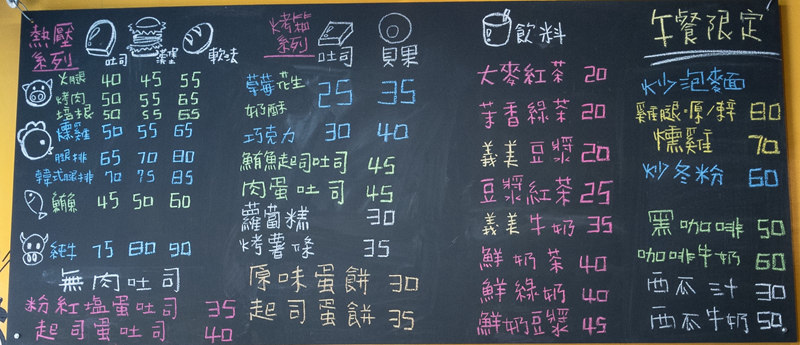 熱壓系列 吐司 漢堡 軟法
火腿 40 45 55
烤肉 50 55 65
培根 50 55 65
燻雞 50 55 65
腿排 65 70 80
韓式腿排 70 75 85
鮪魚 45 50 60
純牛 75 80 90
無肉吐司
粉紅塩蛋吐司 35
起司蛋吐司 40
烤箱系列 吐司 貝果
草莓 花生 奶酥 25 35
巧克力 30 40
鮪魚起司吐司 45
肉蛋吐司 45
蘿蔔糕 30
烤薯條 35
原味蛋餅 30
起司蛋餅 35
飲料
大麥紅茶 20
茉香綠茶 20
義美豆漿 20
豆漿紅茶 25
義美牛奶 35
鮮奶茶 40
鮮綠奶 40
鮮奶豆漿 45
午餐限定
炒泡麵
雞腿·厚/鮮 80
燻雞 70
炒冬粉 60
黑咖啡 50
咖啡牛奶 60
西瓜汁 30
西瓜牛奶 50